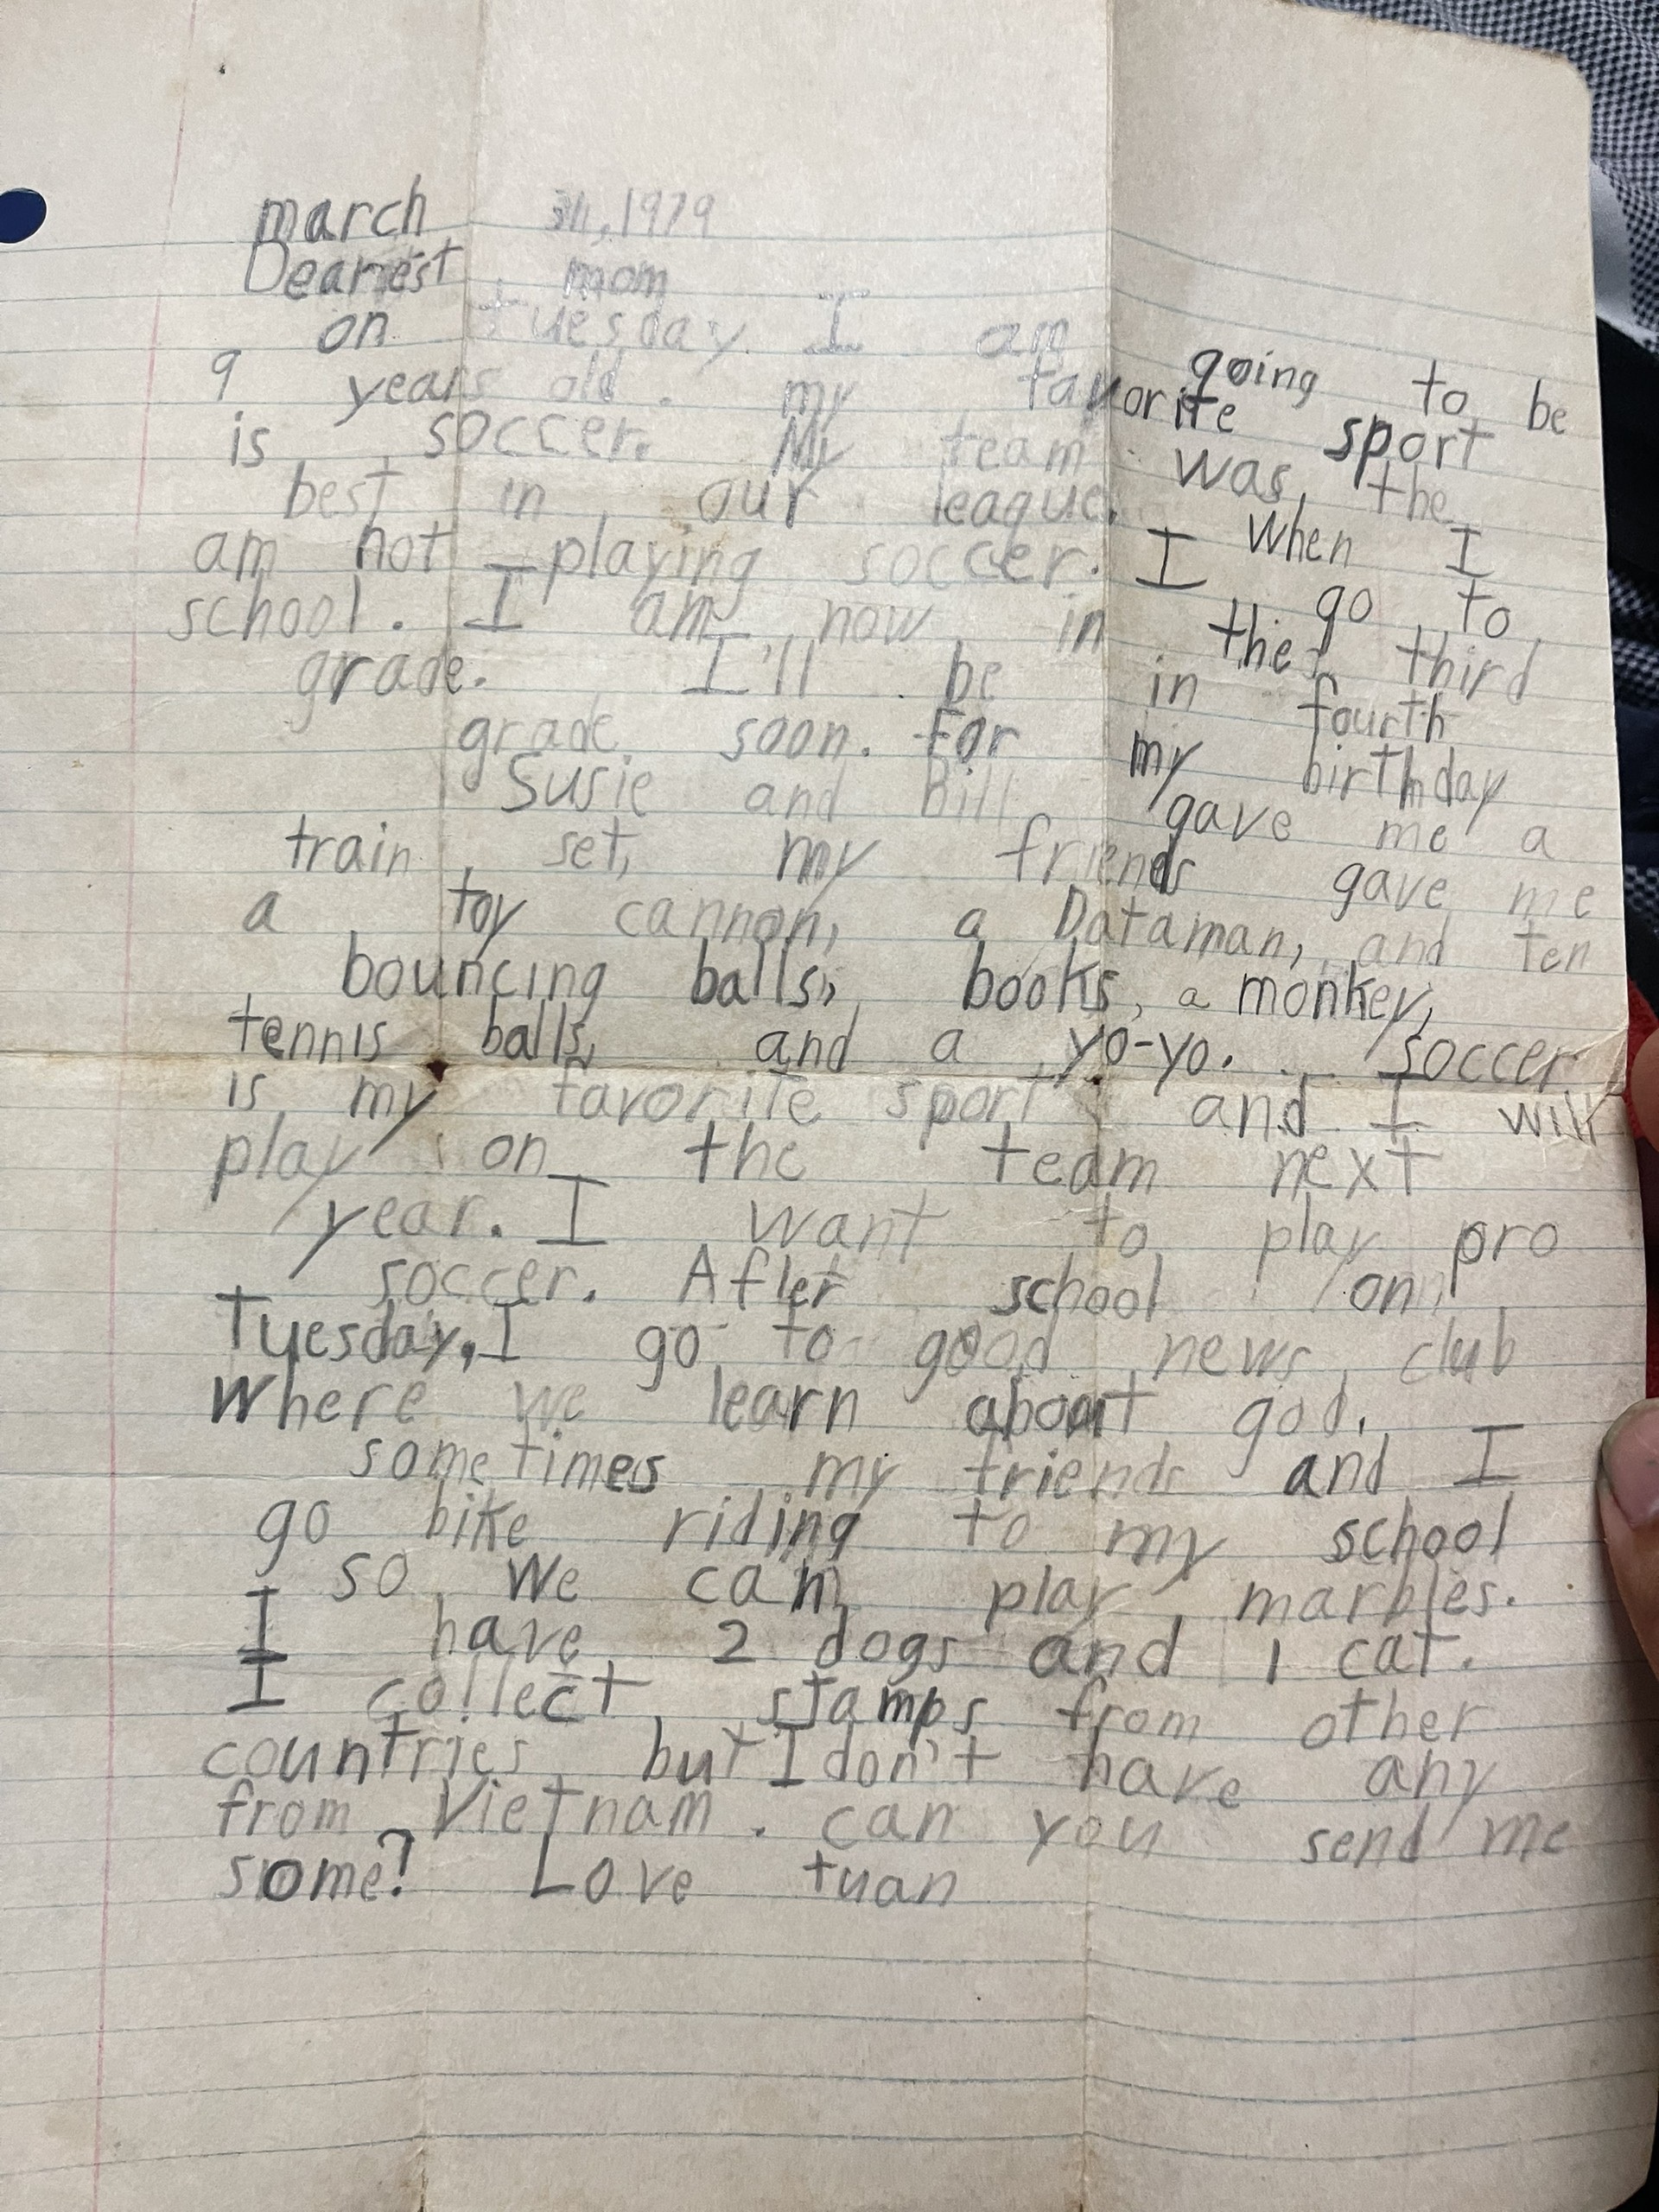 march 31, 1979
Dearest mom
on tuesday I am going to be
9 years old. my favorite sport
is soccer. My team was the
best in our league. When I
am not playing soccer. I go to
school. I am now in the third
grade. I'll be in fourth
grade soon. For my birthday
Susie and Bill gave me a
train set, my friends gave me
a toy cannon, a Dataman, and ten
bouncing balls, books, a monkey,
tennis balls, and a yo-yo. soccer
is my favorite sport and I will
play on the team next
year. I want to play pro
soccer. After school on
Tuesday, I go to good news club
Where we learn about god.
sometimes my friends and I
go bike riding to my school
so we can play marbles.
I have 2 dogs and 1 cat.
I collect stamps from other
countries but I don't have any
from Vietnam. can you send me
some? Love tuan